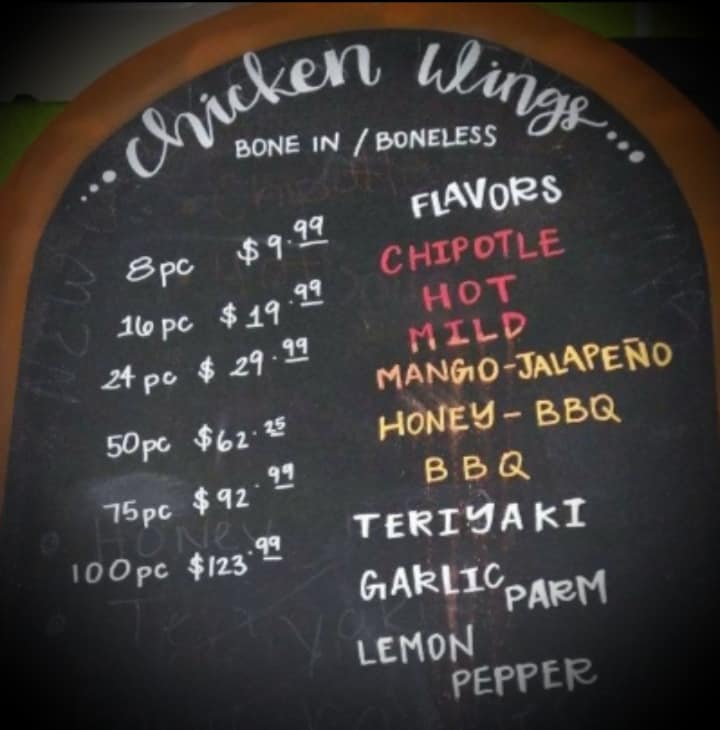 ...Chicken Wings...
BONE IN / BONELESS
8pc $9.99
16pc $19.99
24pc $29.99
50pc $62.25
75pc $92.99
100pc $123.99
FLAVORS
CHIPOTLE
HOT
MILD
MANGO-JALAPEÑO
HONEY-BBQ
BBQ
TERIYAKI
GARLIC PARM
LEMON
PEPPER